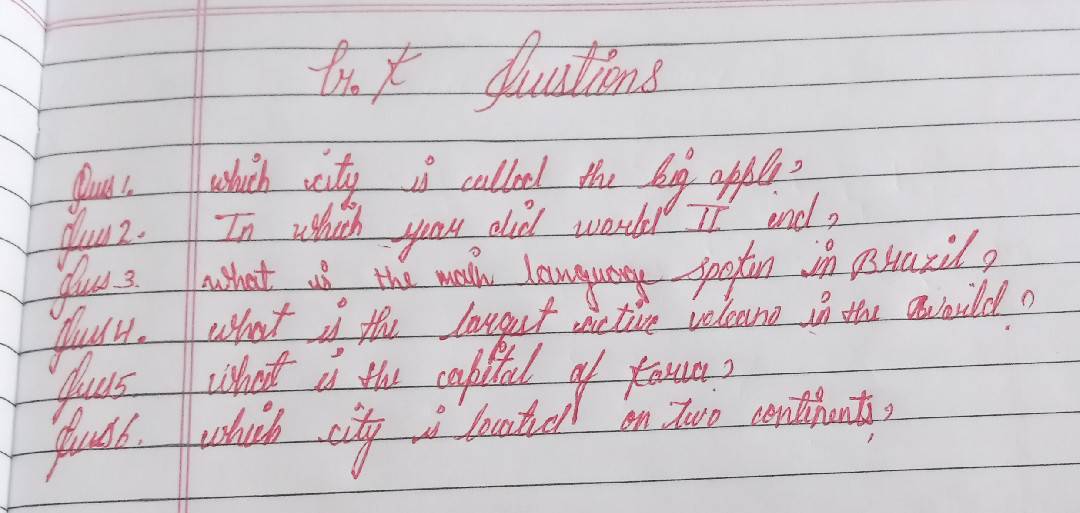 G.K Questions
Ques 1. which city is called the big apple?
Ques 2. In which year did world II end?
Ques 3. what is the main language spoken in Brazil?
Ques 4. what is the largest active volcano in the world?
Ques 5. what is the capital of Korea?
Ques 6. which city is located on two continents?